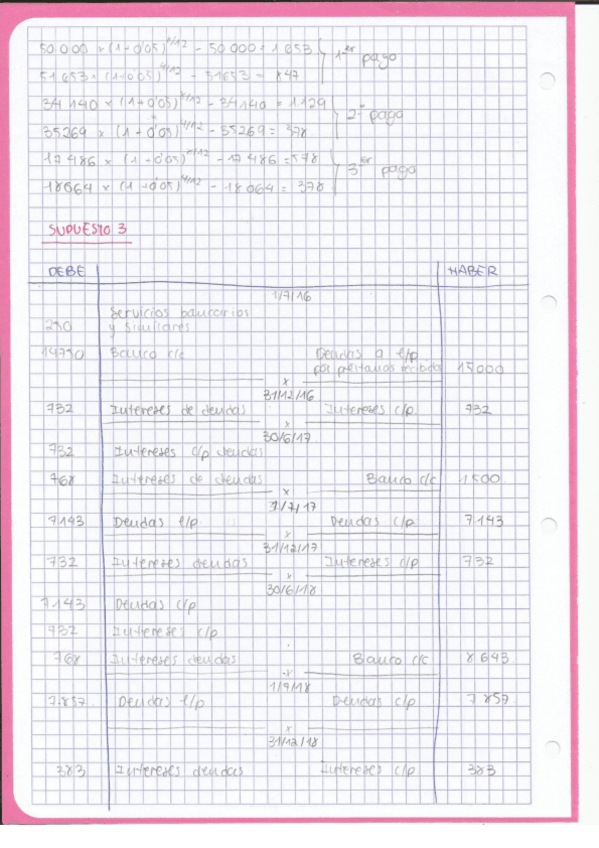 50.000 x (1+0'05)^8/12 - 50.000 = 1.653
51653 x (1+0'05)^4/12 - 51653 = 847
1er pago
34140 x (1+0'05)^8/12 - 34140 = 1.129
35269 x (1+0'05)^4/12 - 35269 = 578
2º pago
17486 x (1+0'05)^8/12 - 17486 = 578
18064 x (1+0'05)^4/12 - 18064 =
3er pago
SUPUESTO 3
DEBE HABER
1/7/16
Servicios bancarios
y similares
14790 Banco c/c Deudas a l/p
por préstamos recibidos 15000
x
31/12/16
732 Intereses de deudas Intereses c/p. 732
x
30/6/17
732 Intereses c/p deudas
768 Intereses de deudas Banco c/c 1500
x
1/7/17
7143 Deudas l/p. Deudas c/p 7143
x
31/12/17
732 Intereses deudas Intereses c/p 732
x
30/6/18
7143 Deudas c/p
732 Intereses c/p
768 Intereses deudas Banco c/c 8643
x
1/7/18
7.857 Deudas l/p Deudas c/p 7857
x
31/12/18
383 Intereses deudas Intereses c/p 383